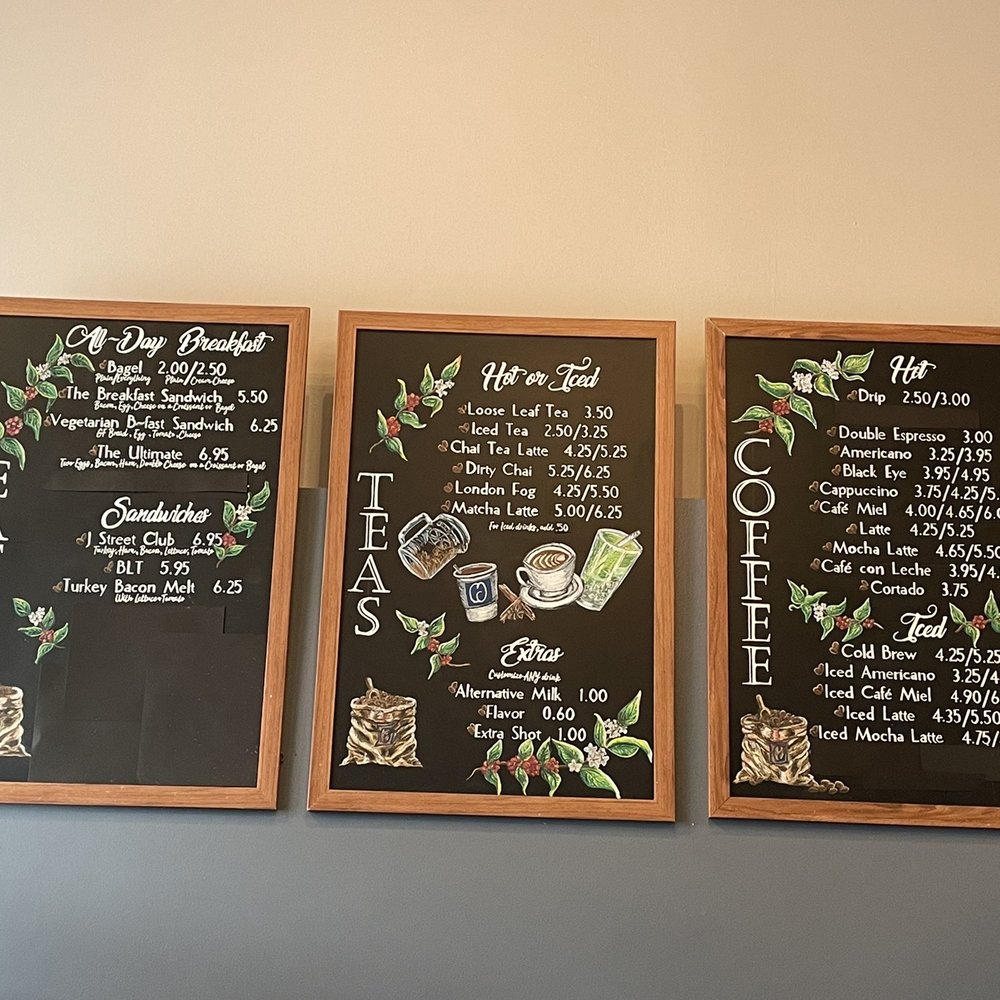 All-Day Breakfast
Bagel 2.00/2.50
Plain/Everything Plain/Cream Cheese
The Breakfast Sandwich 5.50
Bacon, Egg, Cheese on a Croissant or Bagel
Vegetarian B-fast Sandwich 6.25
GF Bread, Egg, Tomato, Cheese
The Ultimate 6.95
Two Eggs, Bacon, Ham, Double Cheese on a Croissant or Bagel
Sandwiches
J Street Club 6.95
Turkey, Ham, Bacon, Lettuce, Tomato
BLT 5.95
Turkey Bacon Melt 6.25
With Lettuce & Tomato
TEAS
Hot or Iced
Loose Leaf Tea 3.50
Iced Tea 2.50/3.25
Chai Tea Latte 4.25/5.25
Dirty Chai 5.25/6.25
London Fog 4.25/5.50
Matcha Latte 5.00/6.25
For Iced drinks, add .50
Extras
Customize ANY drink
Alternative Milk 1.00
Flavor 0.60
Extra Shot 1.00
COFFEE
Hot
Drip 2.50/3.00
Double Espresso 3.00
Americano 3.25/3.95
Black Eye 3.95/4.95
Cappuccino 3.75/4.25/5.
Café Miel 4.00/4.65/6.0
Latte 4.25/5.25
Mocha Latte 4.65/5.50
Café con Leche 3.95/4.
Cortado 3.75
Iced
Cold Brew 4.25/5.25
Iced Americano 3.25/4.
Iced Café Miel 4.90/6
Iced Latte 4.35/5.50
Iced Mocha Latte 4.75/